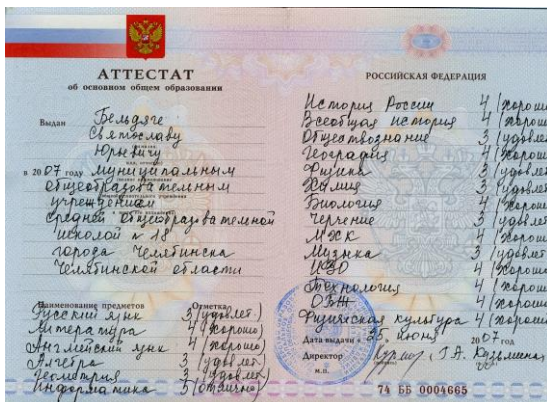 АТТЕСТАТ
об основном общем образовании
Выдан Бельдяге
Святославу
Юрьевичу
в 2007 году муниципальным
общеобразовательным
учреждением
средней общеобразовательной
школой № 18
города Челябинска
Челябинской области
Наименование предметов Отметка
Русский язык 3 (удовлет.)
Литература 4 (хорошо)
Английский язык 4 (хорошо)
Алгебра 3 (удовлет.)
Геометрия 3 (удовлет.)
Информатика 5 (отлично)
РОССИЙСКАЯ ФЕДЕРАЦИЯ
История России 4 (хорошо
Всеобщая история 4 (хорошо
Обществознание 3 (удовлет
География 4 (хорошо
Физика 3 (удовлет
Химия 3 (удовлет
Биология 4 (хорошо
Черчение 3 (удовлет
МХК 4 (хорошо
Музыка 3 (удовлет
ИЗО 4 (хорошо
Технология 4 (хорошо
ОБЖ 4 (хорошо
Физическая культура 4 (хорошо
Дата выдачи « 25 » июня 2007 год
Директор Кузьмена
м.п.
74 ББ 0004665